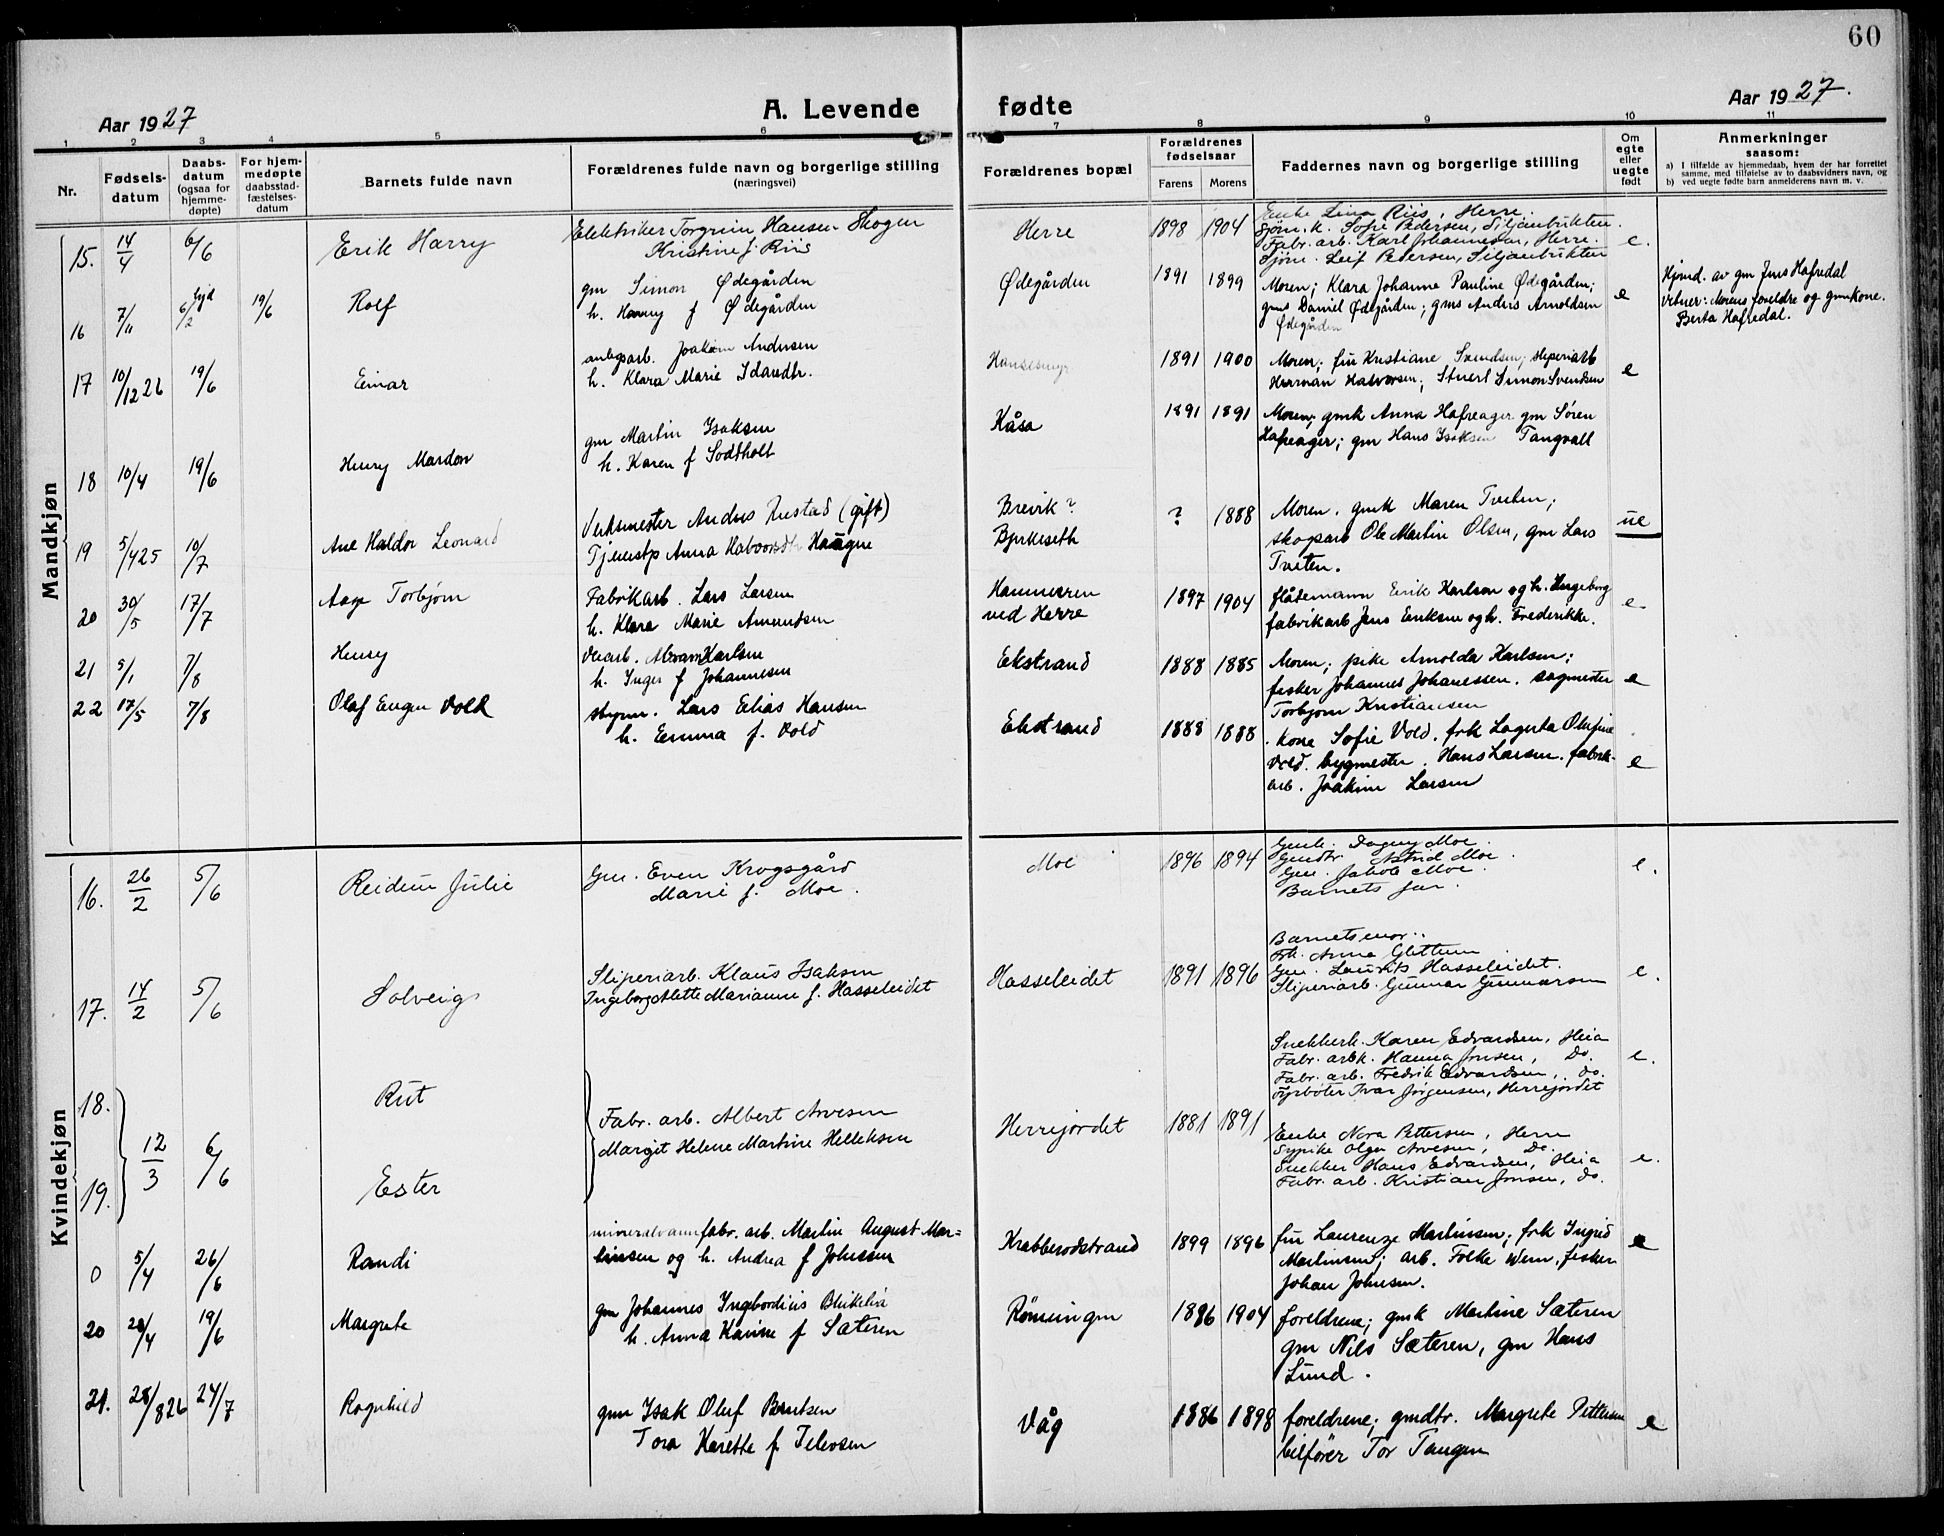 60
Aar 1927
A. Levende fødte
Aar 1927.
1 2 3 4 5 6 7 8 9 10 11
Nr.
Fødsels-
datum
Daabs-
datum
(ogsaa for
hjemme-
døpte)
For hjem-
medøpte
daabsstad-
fæstelses-
datum
Barnets fulde navn
Forældrenes fulde navn og borgerlige stilling
(næringsvei)
Forældrenes bopæl
Forældrenes
fødselsaar
Farens Morens
Faddernes navn og borgerlige stilling
Om
egte
eller
uegte
født
Anmerkninger
saasom:
a) I tilfælde av hjemmedaab, hvem der har forrettet
samme, med tilføielse av to daabsvidners navn, og
b) ved uegte fødte barn anmelderens navn m. v.
Mandkjøn
15. 14/4 6/6 Erik Harry
Elektriker Torgrim Hansen Skogen
Kristine f. Riis
Herre 1898 1904
Enke Lina Riis, Herre
Sjøm.k. Sofie Pedersen, Siljanbukten.
Fabr. arb. Karl Johannesen, Herre.
Sjøm. Leif Petersen, Siljanbukten
e.
16 7/11 6/2 hjd 19/6 Rolf
gm Simon Ødegården
h. Hanny f Ødegården
Ødegården 1891 1899
Moren; Klara Johanne Pauline Ødegården;
gms Daniel Ødegården; gms Anders Arnoldsen
Ødegården
e
Hjemd. av gm Jens Hafredal
Vitner: Morens foreldre og gmkone.
Berta Hafredal.
17 10/12 26 19/6 Einar
anlegsarb. Joakim Andersen
h. Klara Marie Idandtr.
1891 1900
Moren; fru Kristiane Svendsen; sliperiarb
Herman Halvorsen; Stuert Simon Svendsen
e
18 10/4 19/6 Henry Mardon
gm Martin Isaksen
h. Karen f Sodtholt
Kåsa 1891 1891
Moren; gmk Anna Hafreager gm Søren
Hafreager; gm Hans Isaksen Tangvall
19 5/4 25 10/7 Haldor Leonard
Verksmester Andres Rustad (gift)
Tjenestp Anna Haugne
Brevik?
Bjerkeseth
? 1888
Moren. gmk Maren Tveten;
skogsarb Ole Martin Olsen, gm Lars
Tveten.
ue
20 30/5 17/7 Torbjørn
Fabrikarb. Lars Larsen
h. Klara Marie Amundsen
ved Herre
1897 1904
flåtemann Erik Karlsen og h. Ingeborg
fabrikarb Jens Eriksen og h. Frederikke.
e
21 5/1 7/8 Henry
Abram Karlsen
h. Inger f Johannesen
Ekstrand 1888 1885
Moren; pike Arnolda Karlsen;
fisker Johannes Johanessen. sagmester
Torbjørn Kristiansen
e
22 17/5 7/8 Olaf Eugen Vold
styrm. Lars Elias Hansen
h. Emma f. Vold
Ekstrand 1888 1888
Kone Sofie Vold. frk Lagerta Olufine
Vold. bygmester. Hans Larsen. fabrik-
arb. Joakim Larsen
e
Kvindekjøn
16. 26/2 5/6 Reidun Julie
Gm. Even Krogsgård
Marie f. Moe.
Moe 1896 1894
Gmk. Dagny Moe.
Gmdtr. Astrid Moe.
Gm. Jakob Moe.
Barnets far.
e.
17. 14/2 5/6 Solveig
Sliperiarb. Klaus Isaksen
Ingeborg Alette Marianne f. Hasseleidet
Hasseleidet 1891 1896
Barnets mor.
Frk. Anna Glittum
Gm. Laurits Hasseleidet.
Sliperiarb. Gunnar Gunnarsen
e.
18. Rut
Snekkerk. Karen Edvardsen, Heia
Fabr. arbk. Hanna Jonsen, Do.
Fabr. arb. Fredrik Edvardsen, do.
Fyrbøter Ivar Jørgensen, Herrejordet
e.
12/3 6/6
Fabr. arb. Albert Arvesen
Margit Helene Martine Helleksen
Herrejordet 1881 1891
19. Ester
Enke Nora Pettersen, Herre
Sypike Olga Arvesen, Do.
Snekker Hans Edvardsen, Heia
Fabr. arb. Kristian Jonsen, do.
e.
0 5/4 26/6 Randi
mineralvannfabr. arb. Martin August Mar-
tinsen og h. Andrea f Johnsen
Krabberødstrand 1899 1896
fru Laurenze Martinsen; frk Ingrid
Martinsen; arb. Folke Wem, fisker
Johan Johnsen.
e
20 20/4 19/6 Margrete
gm Johannes Ingebordius Blekelia
h. Anna Karine f Sæteren
Rønningen 1886 1904
foreldrene; gmk Martine Sæteren
gm Nils Sæteren, gm Hans
Lund.
21. 28/8 26 24/7 Ragnhild
gm Isak Oluf Berntsen
Tora Karette f Televsen
Våg 1886 1898
foreldrene; gmdtr. Margrete Pettersen
bilfører Tor Tangen
e